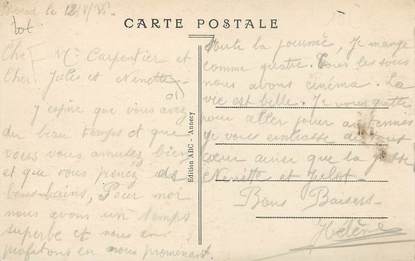 CARTE POSTALE
le 12/V/35
Chère Mme Carpentier et
Cher Jules et Ninette
J'espère que vous avez
du beau temps et que
vous vous amusez bien
et que vous prenez des
bains, Pour moi
nous avons un temps
superbe et nous en
profitons en nous promenant
Edition ABC - Annecy
toute la journée, Je mange
comme quatre. Tous les soirs
nous avons cinéma. La
vie est belle. Je vous quitte
pour aller jouer
Je vous embrasse de tout
cœur ainsi que la
Ninette et
Bons Baisers
Hélène